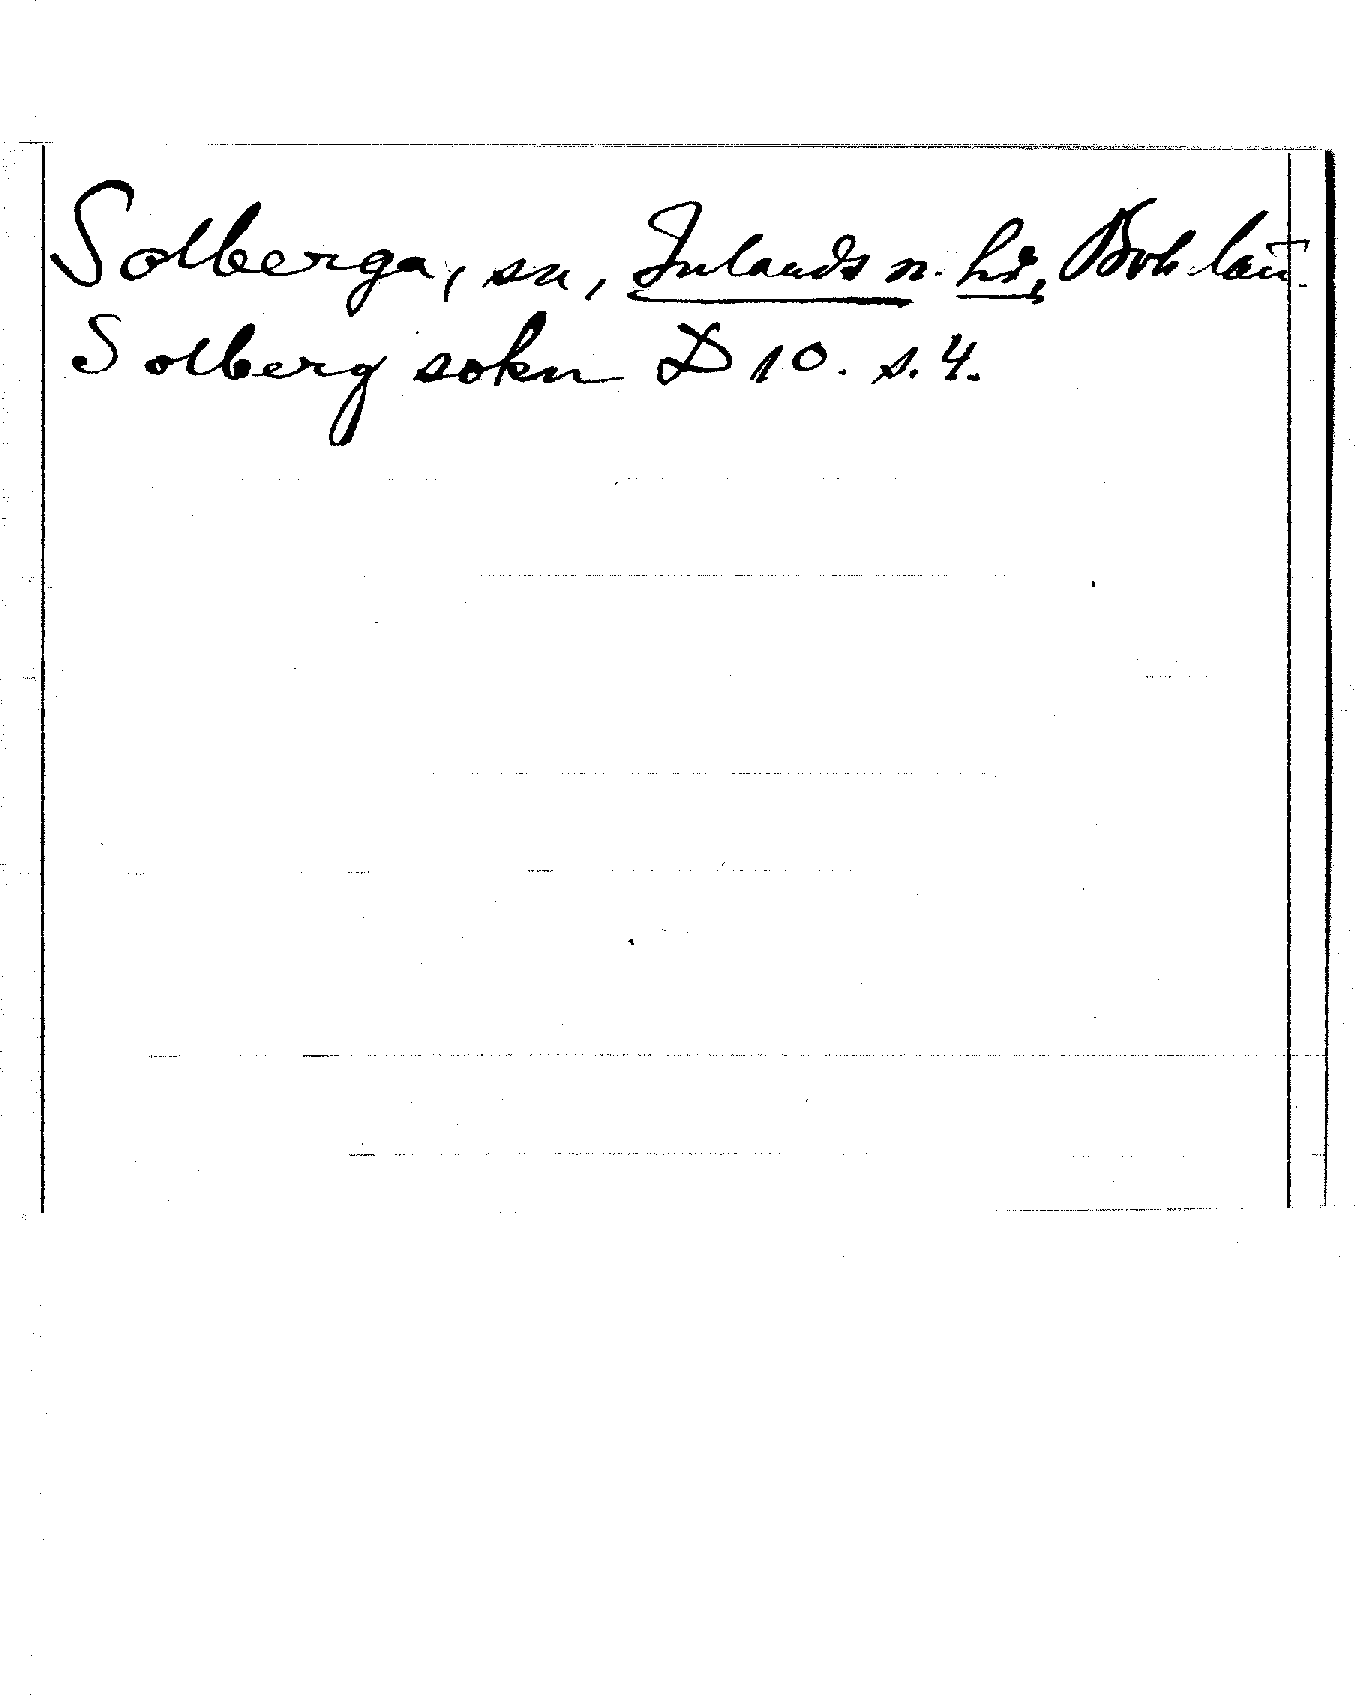 Solberga, sn, Inlands n. hd, Boh län.
Solberg sokn D 10. s. 4.